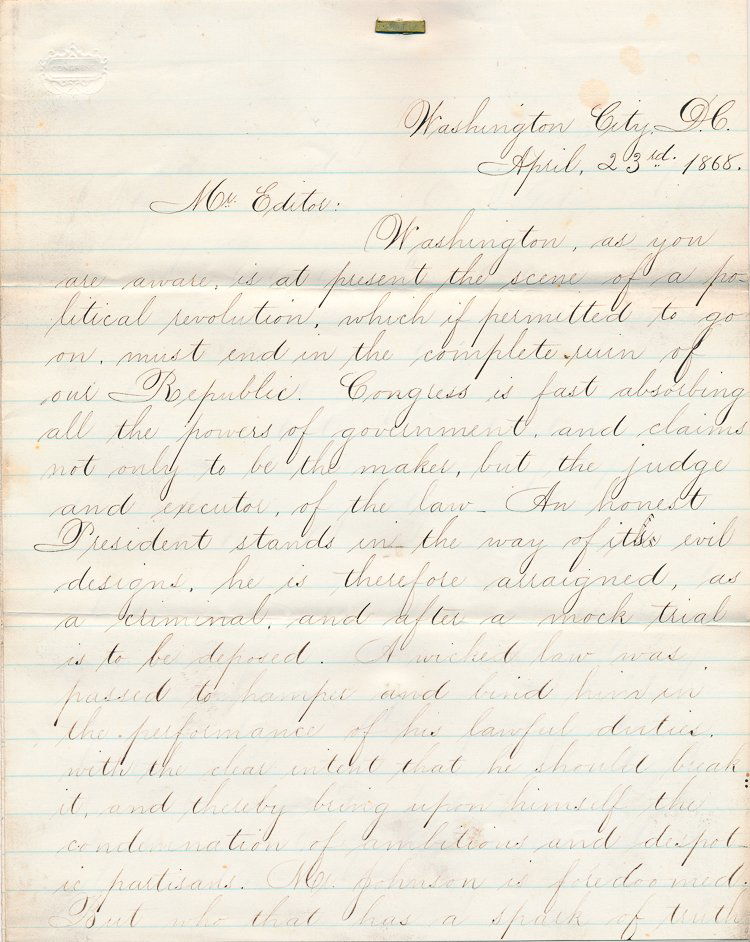 CONGRESS
Washington City, D.C.
April, 23rd. 1868.
Mr. Editor:
Washington, as you
are aware, is at present the scene of a po-
litical revolution, which if permitted to go
on, must end in the complete ruin of
our Republic. Congress is fast absorbing
all the powers of government, and claims
not only to be the maker, but the judge
and executor, of the law- An honest
President stands in the way of its evil
designs, he is therefore arraigned, as
a criminal, and after a mock trial
is to be deposed. A wicked law was
passed to hamper and bind him in
the performance of his lawful duties,
with the clear intent that he should break
it, and thereby bring upon himself the
condemnation of ambitious and despot-
ic partisans. Mr. Johnson is foredoomed.
But who that has a spark of truth